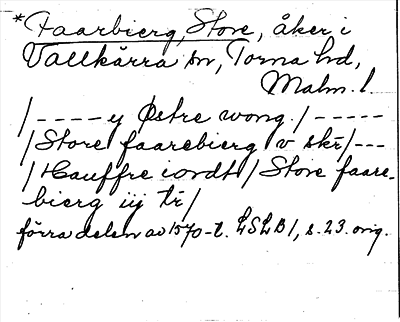 *Faarbierg, Store, åker i
Vallkärra sn, Torna hd,
Malm. l.
/----y Østre wong./-----
/Store faarebierg v skr/---
/Hauffre iordt/Store faare-
bierg iij tr/
förra delen av 1570-t. LSLB 1, s. 23. orig.